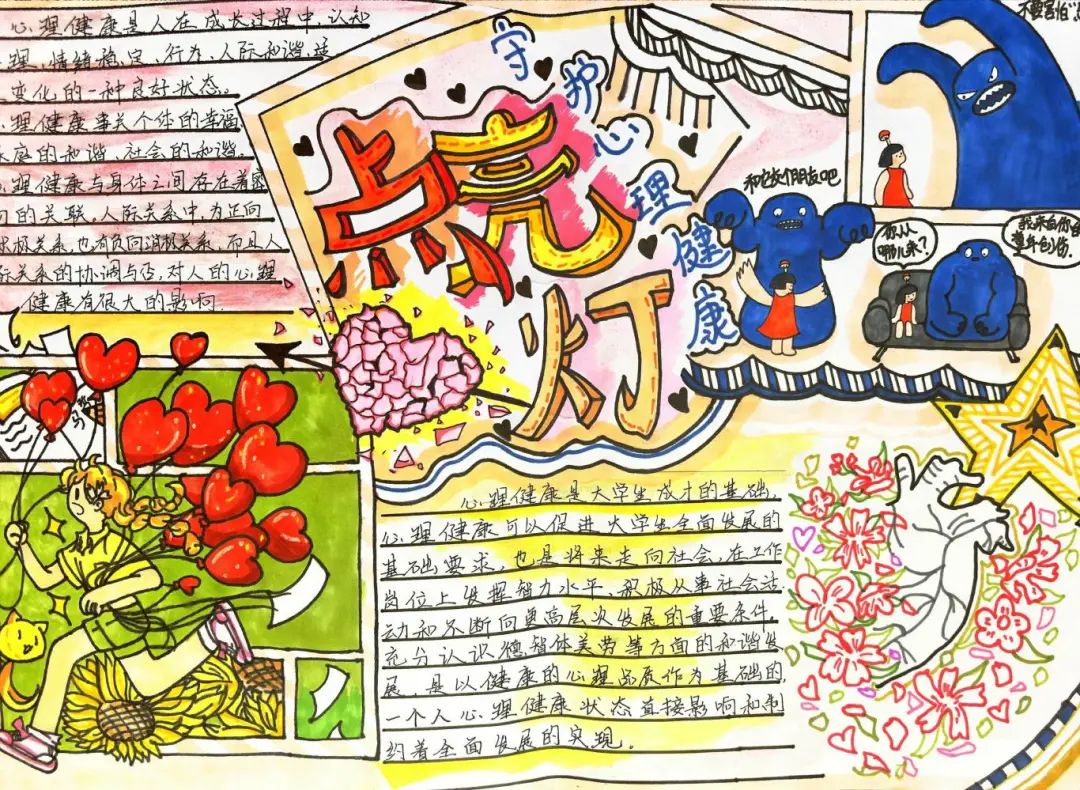 心理健康是人在成长过程中,认知
理,情绪稳定、行为、人际和谐,适
变化的一种良好状态。
理健康事关个体的幸福
家庭的和谐、社会的和谐,
心理健康与身体之间存在着密
切的关联,人际关系中,为正向
积极关系,也有负向消极关系,而且人
际关系的协调与否,对人的心理
健康有很大的影响.
守护心理健康
点亮
灯
不要害怕
和它成们朋友吧
你从
哪儿来?
我来自你
童年创伤.
心理健康是大学生成才的基础,
心理健康可以促进大学生全面发展的
基础要求,也是将来走向社会,在工作
岗位上发挥智力水平、积极从事社会活
动和不断向更高层次发展的重要条件,
充分认识德智体美劳等方面的和谐发
展,是以健康的心理品质作为基础的
一个人心理健康状态直接影响和制
约着全面发展的实现。